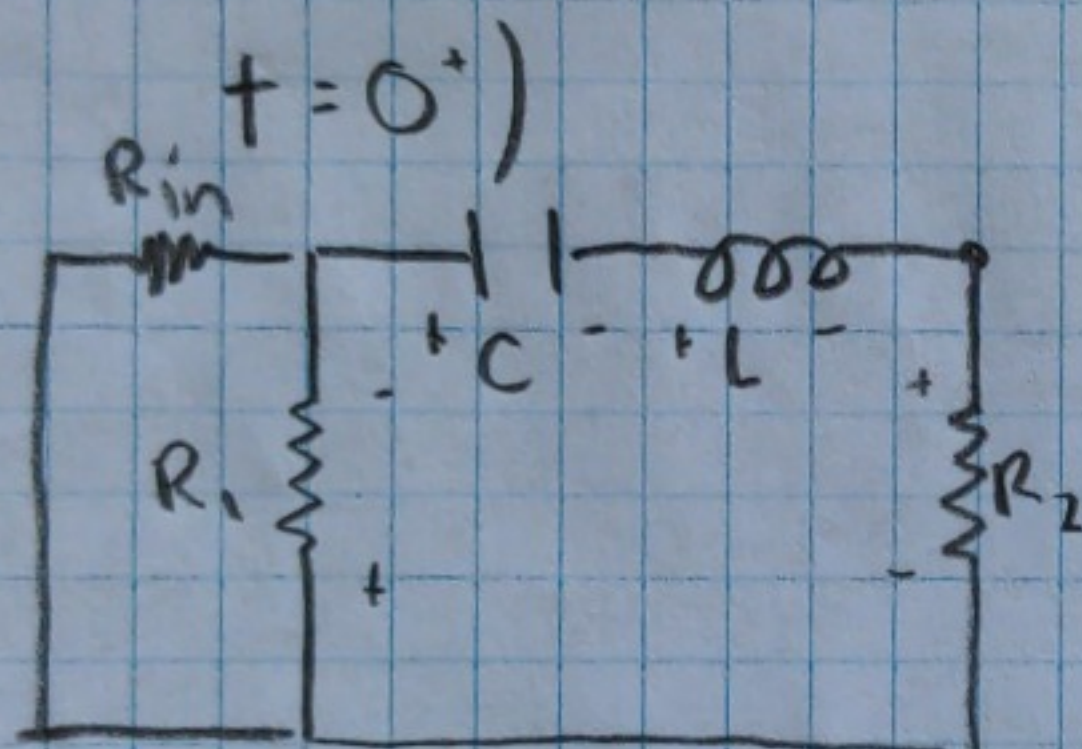 t=0⁺)
Rin
+ C - + L -
- +
R₁ R₂
+ -